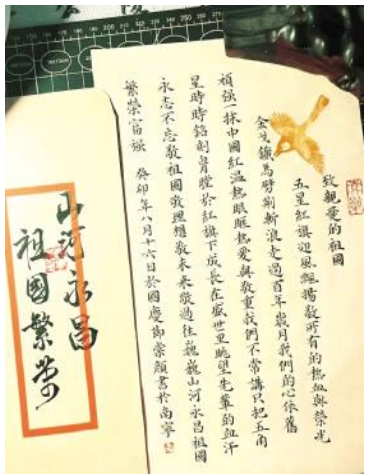 致親愛的祖國
五星紅旗迎風飄揚敬所有的熱血與榮光
金戈鐵馬劈荊斬浪走過百年歲月我們的心依舊
頑强一抹中國紅温熱眼眶熱愛與敬重我們不常講只把五角
星時時銘刻胷膛於紅旗下成長在盛世里眺望先輩的血汗
永志不忘敬祖國敬理想敬未來敬過往巍巍山河永昌祖國
繁榮富强 癸卯年八月十六日於國慶節崇顔書於南寧
山河永昌
祖國繁榮